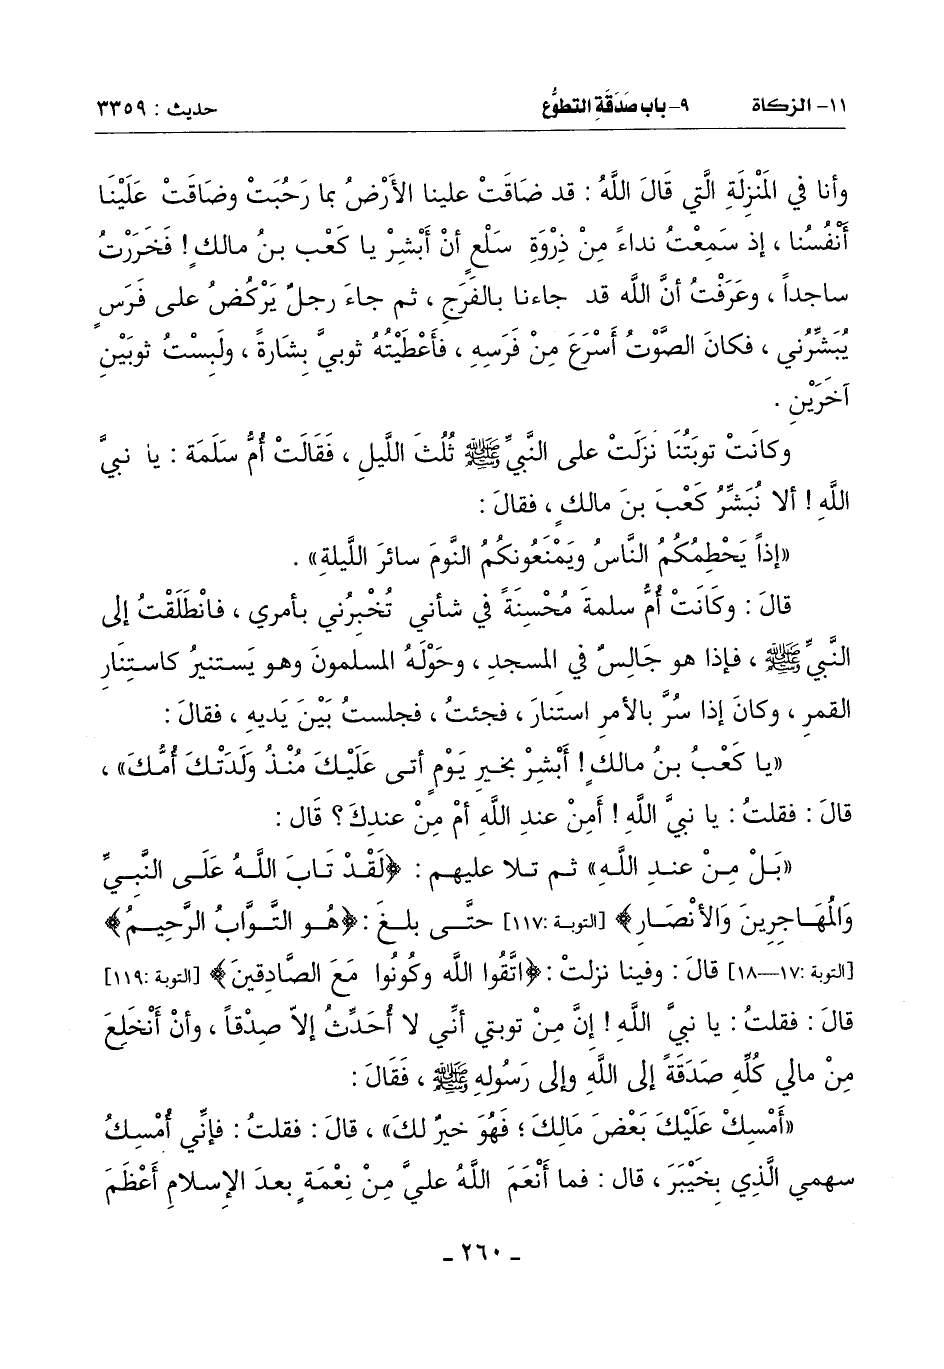 ١١- الزكاة ٩- باب صَدَقَةِ التطوُّع حديث : ٣٣٥٩
وأنا في المَنْزِلَةِ الَّتي قَالَ اللَّهُ : قد ضَاقَتْ علينا الأَرْضُ بما رَحُبَتْ وضَاقَتْ عَلَيْنا
أَنْفُسُنا ، إذ سَمِعْتُ نداءً مِنْ ذِرْوَةِ سَلْعٍ أنْ أَبْشِرْ يا كَعْب بنُ مالكٍ! فَخَرَرْتُ
ساجداً ، وعَرَفْتُ أنَّ اللَّه قد جاءنا بالفَرَجِ ، ثم جاءَ رجلٌ يَرْكُضُ على فَرَسٍ
يُبَشِّرُني ، فكانَ الصَّوْتُ أَسْرَعَ مِنْ فَرَسِهِ ، فأَعْطَيْتُهُ ثوبيَّ بِشَارةً ، ولَبِسْتُ ثوبَيْنِ
آخَرَيْنِ .
وكانَتْ توبَتُنا نَزلَتْ على النَّبيِّ ﷺ ثُلُثَ اللَّيلِ ، فَقَالَتْ أُمُّ سَلَمَة : يا نبيَّ
اللَّهِ ! ألا نُبَشِّرُ كَعْبَ بنَ مالكٍ ، فقالَ :
«إذاً يَحْطِمُكُمُ النَّاسُ ويَمْنَعُونكُمُ النَّومَ سائرَ اللَّيلةِ» .
قالَ : وكَانَتْ أُمُّ سلمةَ مُحْسِنَةً في شأني تُخْبِرُني بأمري ، فانْطَلَقْتُ إلى
النَّبيِّ ﷺ ، فإذا هو جَالِسٌ في المسجدِ ، وحَوْلَهُ المسلمونَ وهو يَستنيرُ كاستِنَارِ
القمرِ ، وكانَ إذا سُرَّ بالأمرِ استَنارَ ، فجئتُ ، فجلستُ بَيْنَ يَديهِ ، فقالَ :
«يا كَعْبُ بنُ مالكٍ! أَبْشِرْ بخيرِ يَوْمٍ أتى عَلَيْكَ مُنْذُ ولَدَتْكَ أُمُّكَ» ،
قالَ : فقلتُ : يا نبيَّ اللَّهِ ! أَمِنْ عندِ اللَّهِ أمْ مِنْ عندِكَ ؟ قَال :
«بَلْ مِنْ عندِ اللَّهِ» ثم تلا عليهم : ﴿لَقَدْ تَابَ اللَّهُ عَلَى النَّبيِّ
وَالمُهَاجِرينَ وَالأنْصَارِ﴾ [التوبة :١١٧] حتَّى بلغَ : ﴿هُو التَّوَّابُ الرَّحيمُ﴾
[التوبة :١٧—١٨] قالَ : وفينا نزلتْ : ﴿اتَّقُوا اللَّه وكُونُوا مَعَ الصَّادِقينَ﴾ [التوبة :١١٩]
قالَ : فقلتُ : يا نبيَّ اللَّهِ ! إنَّ مِنْ توبتي أنِّي لا أُحَدِّثُ إلاّ صِدْقاً ، وأنْ أنْخَلِعَ
مِنْ مالي كُلِّهِ صَدَقَةً إلى اللَّهِ وإلى رَسُولِهِ ﷺ ، فَقَالَ :
«أَمْسِكْ عَلَيْكَ بَعْضَ مَالِكَ ؛ فهُوَ خيرٌ لكَ» ، قالَ : فقلتُ : فإنِّي أُمْسِكُ
سهمي الَّذي بِخَيْبَرَ ، قال : فما أَنْعَمَ اللَّهُ عليَّ مِنْ نِعْمَةٍ بعدَ الإسلامِ أَعْظَمَ
ـ ٢٦٠ ـ